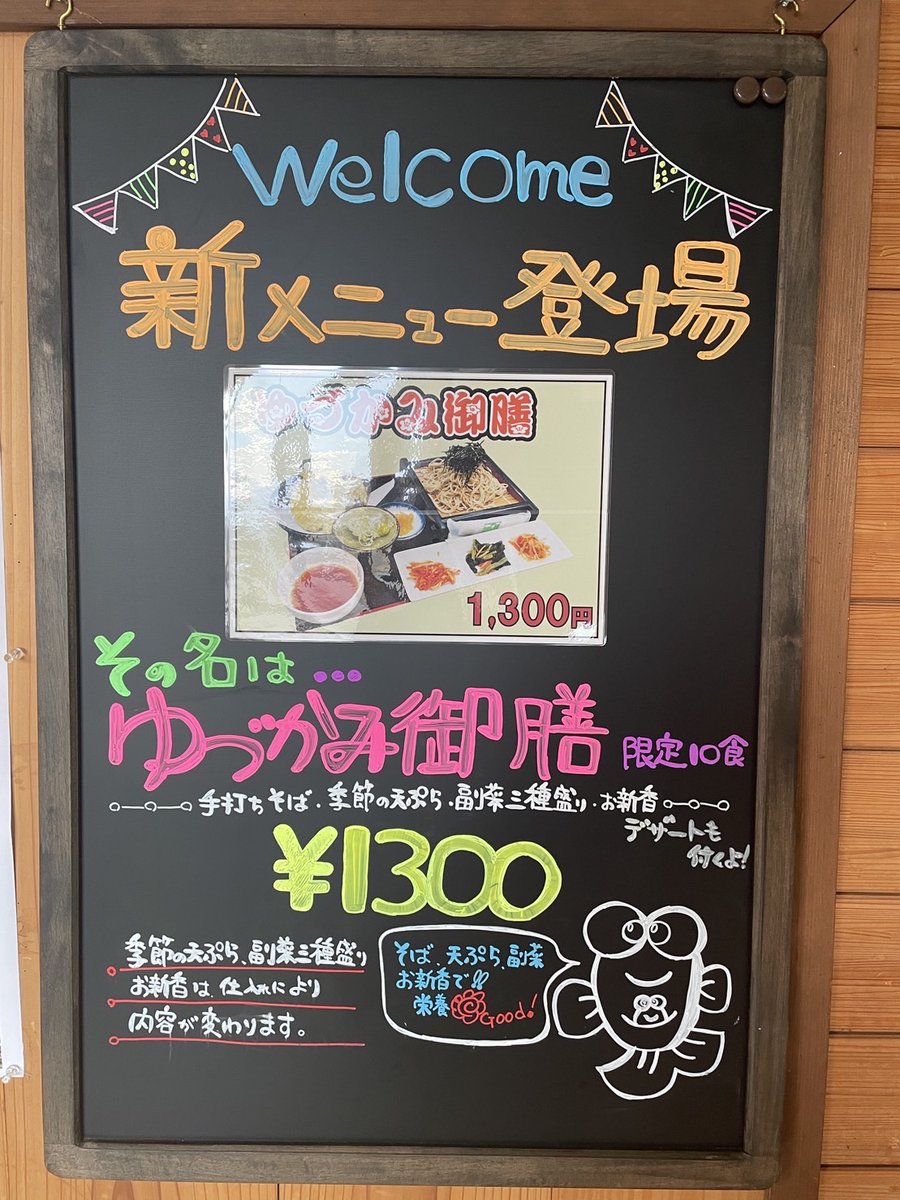 Welcome
新メニュー登場
ゆづかみ御膳
1,300円
その名は...
ゆづかみ御膳 限定10食
手打ちそば・季節の天ぷら・副菜三種盛り・お新香
デザートも
付くよ!
¥1300
季節の天ぷら、副菜三種盛り
お新香は、仕入れにより
内容が変わります。
そば、天ぷら、副菜
お新香で!!
栄養Good!